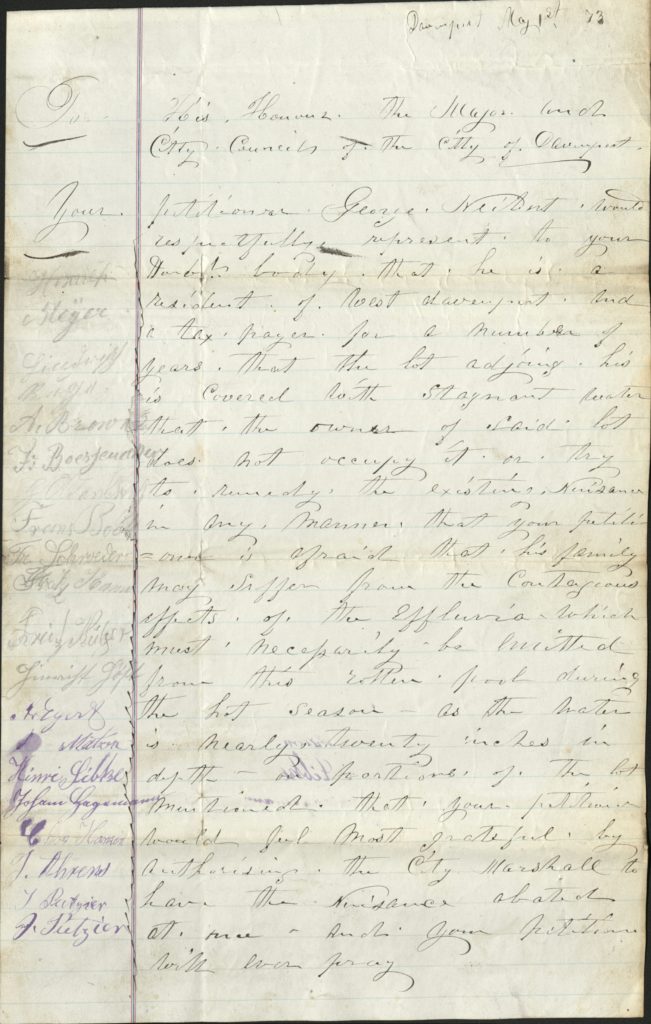 Davenport May 1st 73
To His Honour the Major and
City Councils of the City of Davenport.
Your petitioner George Neibert would
respectfully represent to your
Honor. body that he is a
resident of West davenport and
a tax payer for a number of
years. that the lot adjoing his
is covered with Stagnant water
that the owner of said lot
does not occupy it or try
to remedy the existing Nuisance
in any manner that your petiti
=oner is afraid that his family
may suffer from the Contageous
effects of the Effluvia which
must necessarily be emitted
from this rotten pool during
the hot season - as the water
is nearly twenty inches in
depth - on portions of the lot
mentioned that your petitioner
would feel most grateful by
authorising the City Marshall to
have the Nuisance abated
at once - and your petitioner
will ever pray
Hinrich
Meyer
A. Brown
Frans
Fr. Schroeder
Fritz
Hinrich
Hinri Libke
Johann Hagemann
J. Ahrens
J Petzier
J. Petzier